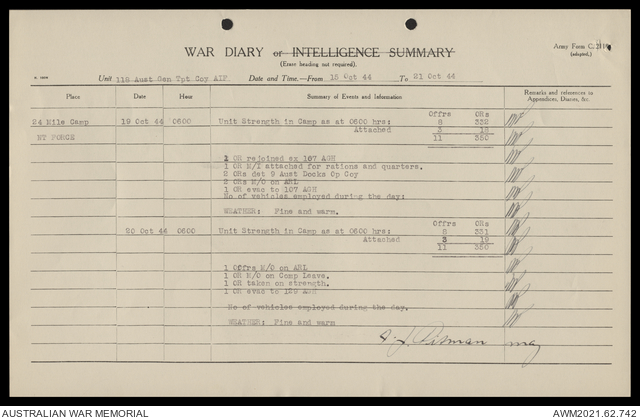 WAR DIARY or INTELLIGENCE SUMMARY
(Erase heading not required).
Army Form C.
(adapted.)
Unit 118 Aust Gen Tpt Coy AIF. Date and Time.—From 15 Oct 44 To 21 Oct 44
Place Date Hour Summary of Events and Information Remarks and references to Appendices, Diaries, &c.
Offrs ORs
24 Mile Camp 19 Oct 44 0600 Unit Strength in Camp as at 0600 hrs: 8 332
Attached 3 18
NT FORCE 11 350
1 OR rejoined ex 107 AGH
1 OR M/I attached for rations and quarters.
2 ORs det 9 Aust Docks Op Coy
2 ORs M/O on ARL
1 OR evac to 107 AGH
No of vehicles employed during the day:
WEATHER: Fine and warm.
Offrs ORs
20 Oct 44 0600 Unit Strength in Camp as at 0600 hrs: 8 331
Attached 3 19
11 350
1 Offrs M/O on ARL
1 OR M/O on Comp Leave.
1 OR taken on strength.
1 OR evac to 129 AGH
No of vehicles employed during the day.
WEATHER: Fine and warm
Pitman maj
AUSTRALIAN WAR MEMORIAL
AWM2021.62.742